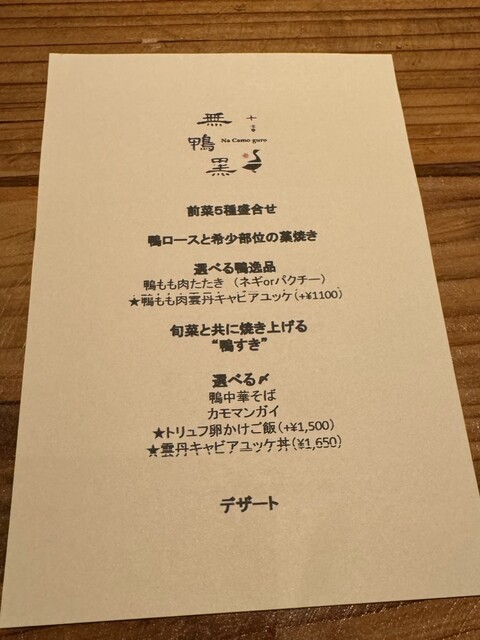 無
鴨
黒
Na Camo guro
前菜5種盛合せ
鴨ロースと希少部位の藁焼き
選べる鴨逸品
鴨もも肉たたき （ネギorパクチー）
★鴨もも肉雲丹キャビアユッケ（+¥1100）
旬菜と共に焼き上げる
“鴨すき”
選べる〆
鴨中華そば
カモマンガイ
★トリュフ卵かけご飯（+¥1,500）
★雲丹キャビアユッケ丼（¥1,650）
デザート